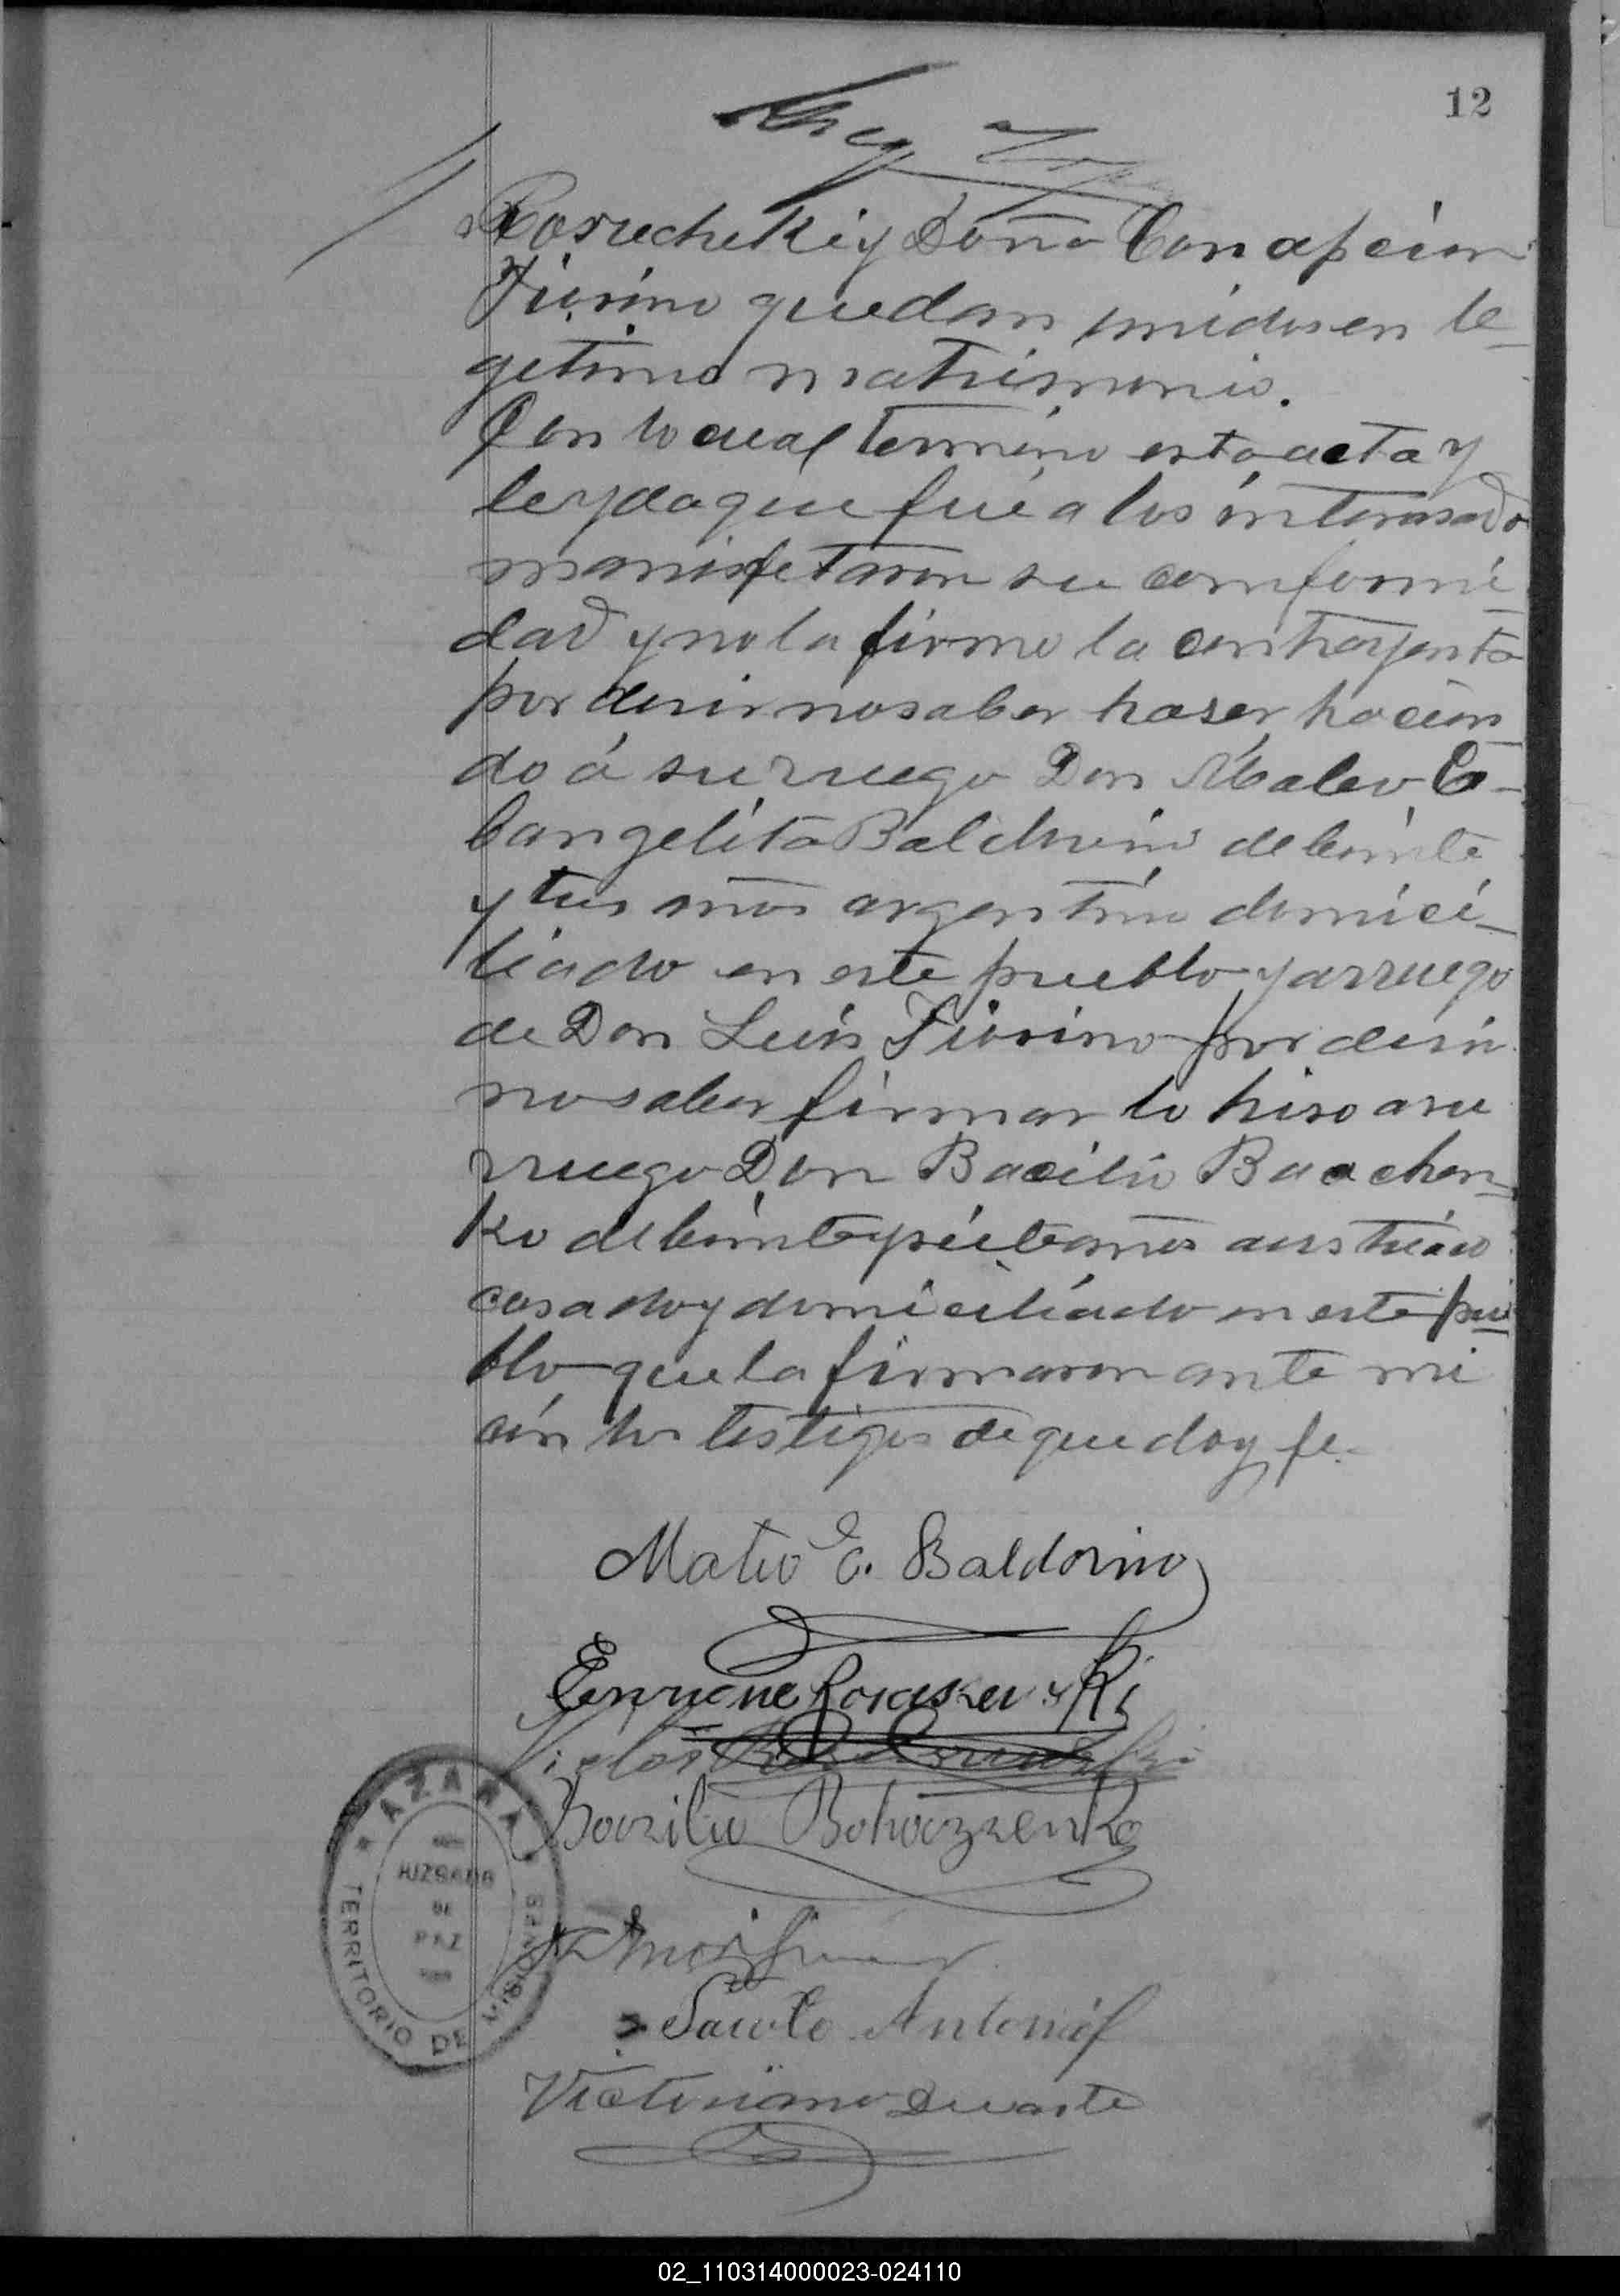 12
Rosuchekiy Doña Concepcion
Fiorino quedan unidos en le-
getimo matrimonio.
Con lo cual termino esta acta y
leyda que fué a los interasado
manisfetaron su comformi
dad y no la firmo la contrayente
por desir no saber haser hacien
do á su rruego Don Mateo E-
bangelita Baldurino de beinte
y tres años argentino domici-
liado en este pueblo y arruego
de Don Luis Fiorino por desir
no saber firmar lo hiso a su
rruego Don Bacilio Buachen-
ko de beinte y siete años austriaco
casado y domiciliado en este pue
blo que la firmaron ante mi
con los testigos de que doy fe.
Mateo E. Baldovino
Enrique Rosuskewski
Bazilio Bohoczzenko
AZARA
JUZGADO
DE
PAZ
TERRITORIO DE MISIONES
Antoniof
Victoriano Duarte
02_110314000023-024110